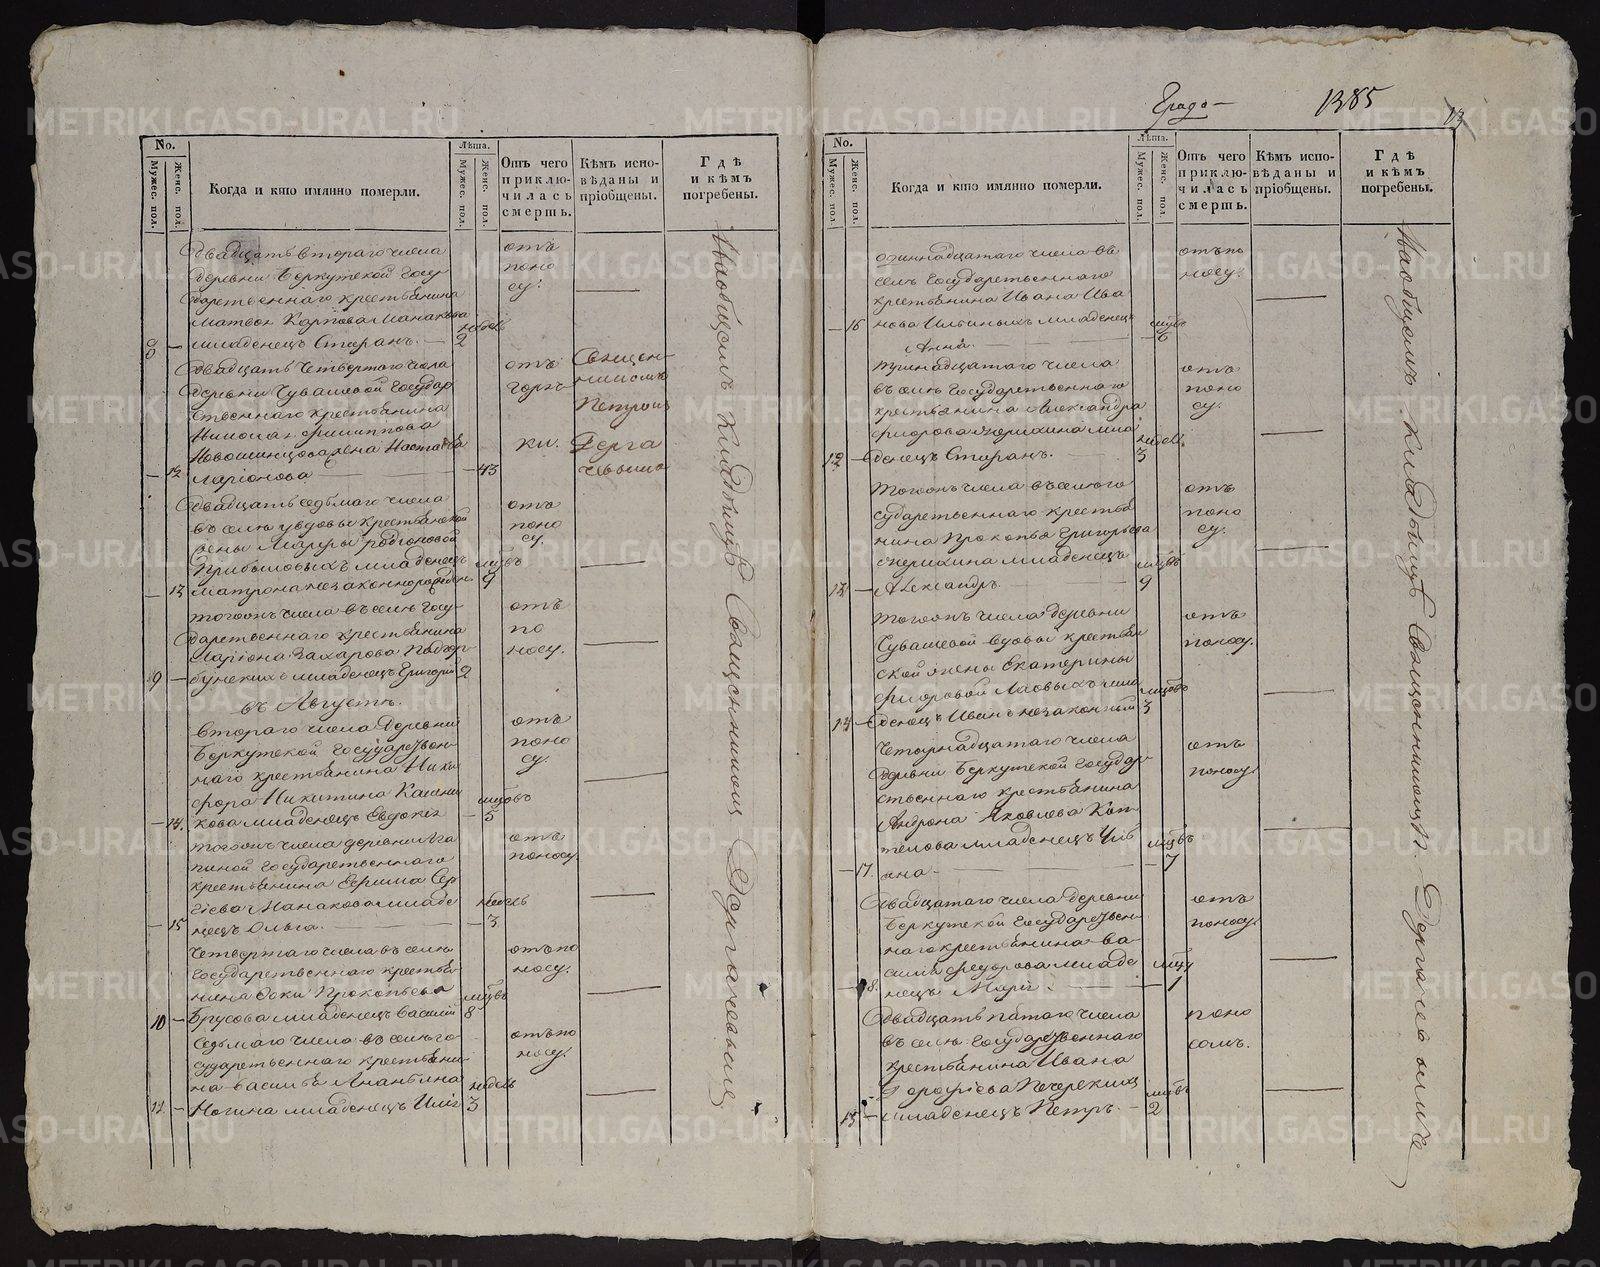 Градо—
1385
13
No.
Мужес. пол.
Женс. пол.
Когда и кто имянно померли.
Лѣта.
Мужес. пол.
Женс. пол.
Отъ чего приклю-чилась смерть.
Кѣмъ испо-вѣданы и пріобщены.
Гдѣ и кѣмъ погребены.
Двадцать втораго числа
деревни Беркутской Госу
дарственнаго крестьянина
Матвея Карпова Манакова
8 — младенецъ Стефанъ. — недель 2
отъ
поно
су.
Двадцать четвертаго числа
деревни Чувашевой Государ
ственнаго крестьянина
Николая Филиппова
жена Настасья
— 12 Ларіонова — 43
отъ
горяч
ки.
Священ-
никомъ
Петромъ
Дерга
чевымъ
Двадцать седьмаго числа
въ селѣ у вдовы крестьянской
жены Марфы Родіоновой
Прибыловыхъ младенецъ мцовъ
— 13 Матрона незаконнорожден 9
отъ
поно
су.
тогожъ числа въ селѣ Госу-
дарственнаго крестьянина
Ларіона Захарова Подкор
9 — бунскихъ младенецъ Григорій 2
отъ
по
носу.
въ Августѣ.
втораго числа деревни
Беркутской Государствен-
наго крестьянина Ники
фора Никитина
— 14. младенецъ Евдокія мцовъ 5
отъ
поно
су.
тогожъ числа деревни
Государственнаго
крестьянина Ефима Сер
гіева Манакова младе недель
— 15 нецъ Ольга. — 3
отъ
поносу.
Четвертаго числа въ селѣ
Государственнаго крестья-
нина Фоки Прокопьева мцовъ
10 — Брусова младенецъ Василій 8
отъ по
носу.
Седьмаго числа въ селѣ го
сударственнаго крестьяни
на Василья Ананьина недель
11 — Ногина младенецъ Илія 3
отъ по
носу.
На общемъ кладбищѣ Священникомъ Дергачевымъ
No.
Мужес. пол.
Женс. пол.
Когда и кто имянно померли.
Лѣта.
Мужес. пол.
Женс. пол.
Отъ чего приклю-чилась смерть.
Кѣмъ испо-вѣданы и пріобщены.
Гдѣ и кѣмъ погребены.
одиннадцатаго числа въ
селѣ Государственнаго
крестьянина Ивана Ива
— 16 нова Ильиныхъ младенецъ мцовъ
Анна. — 6
отъ по
носу.
тринадцатаго числа
въ селѣ Государственнаго
крестьянина Александра
Федорова Черихина мла недель
12 — денецъ Стефанъ. 3
отъ
поно
су.
тогожъ числа въ селѣ го
сударственнаго крестья
нина Прокопья Григорьева
Черихина младенецъ мцовъ
13 — Александръ — 9
отъ
поно
су.
тогожъ числа деревни
Чувашевой вдовы крестьян
ской жены Екатерины
Федоровой мла мцовъ
14 — денецъ Иванъ незаконный 3
отъ
поносу.
Четырнадцатаго числа
деревни Беркутской Государ
ственнаго крестьянина
Андрона Яковлева Коп
телова младенецъ Улі мцовъ
— 17. яна — 7
отъ
поносу.
Двадцатаго числа деревни
Беркутской Государствен-
наго крестьянина Ва
силія Федорова младе мцъ
— 18. нецъ Марія — 1
отъ
поносу.
Двадцать пятаго числа
въ селѣ Государственнаго
крестьянина Ивана
Дорофѣева Печерскихъ мцовъ
15 — младенецъ Петръ. — 2
поно
сомъ.
На общемъ кладбищѣ Священникомъ П. Дергачевымъ
METRIKI.GASO-URAL.RU